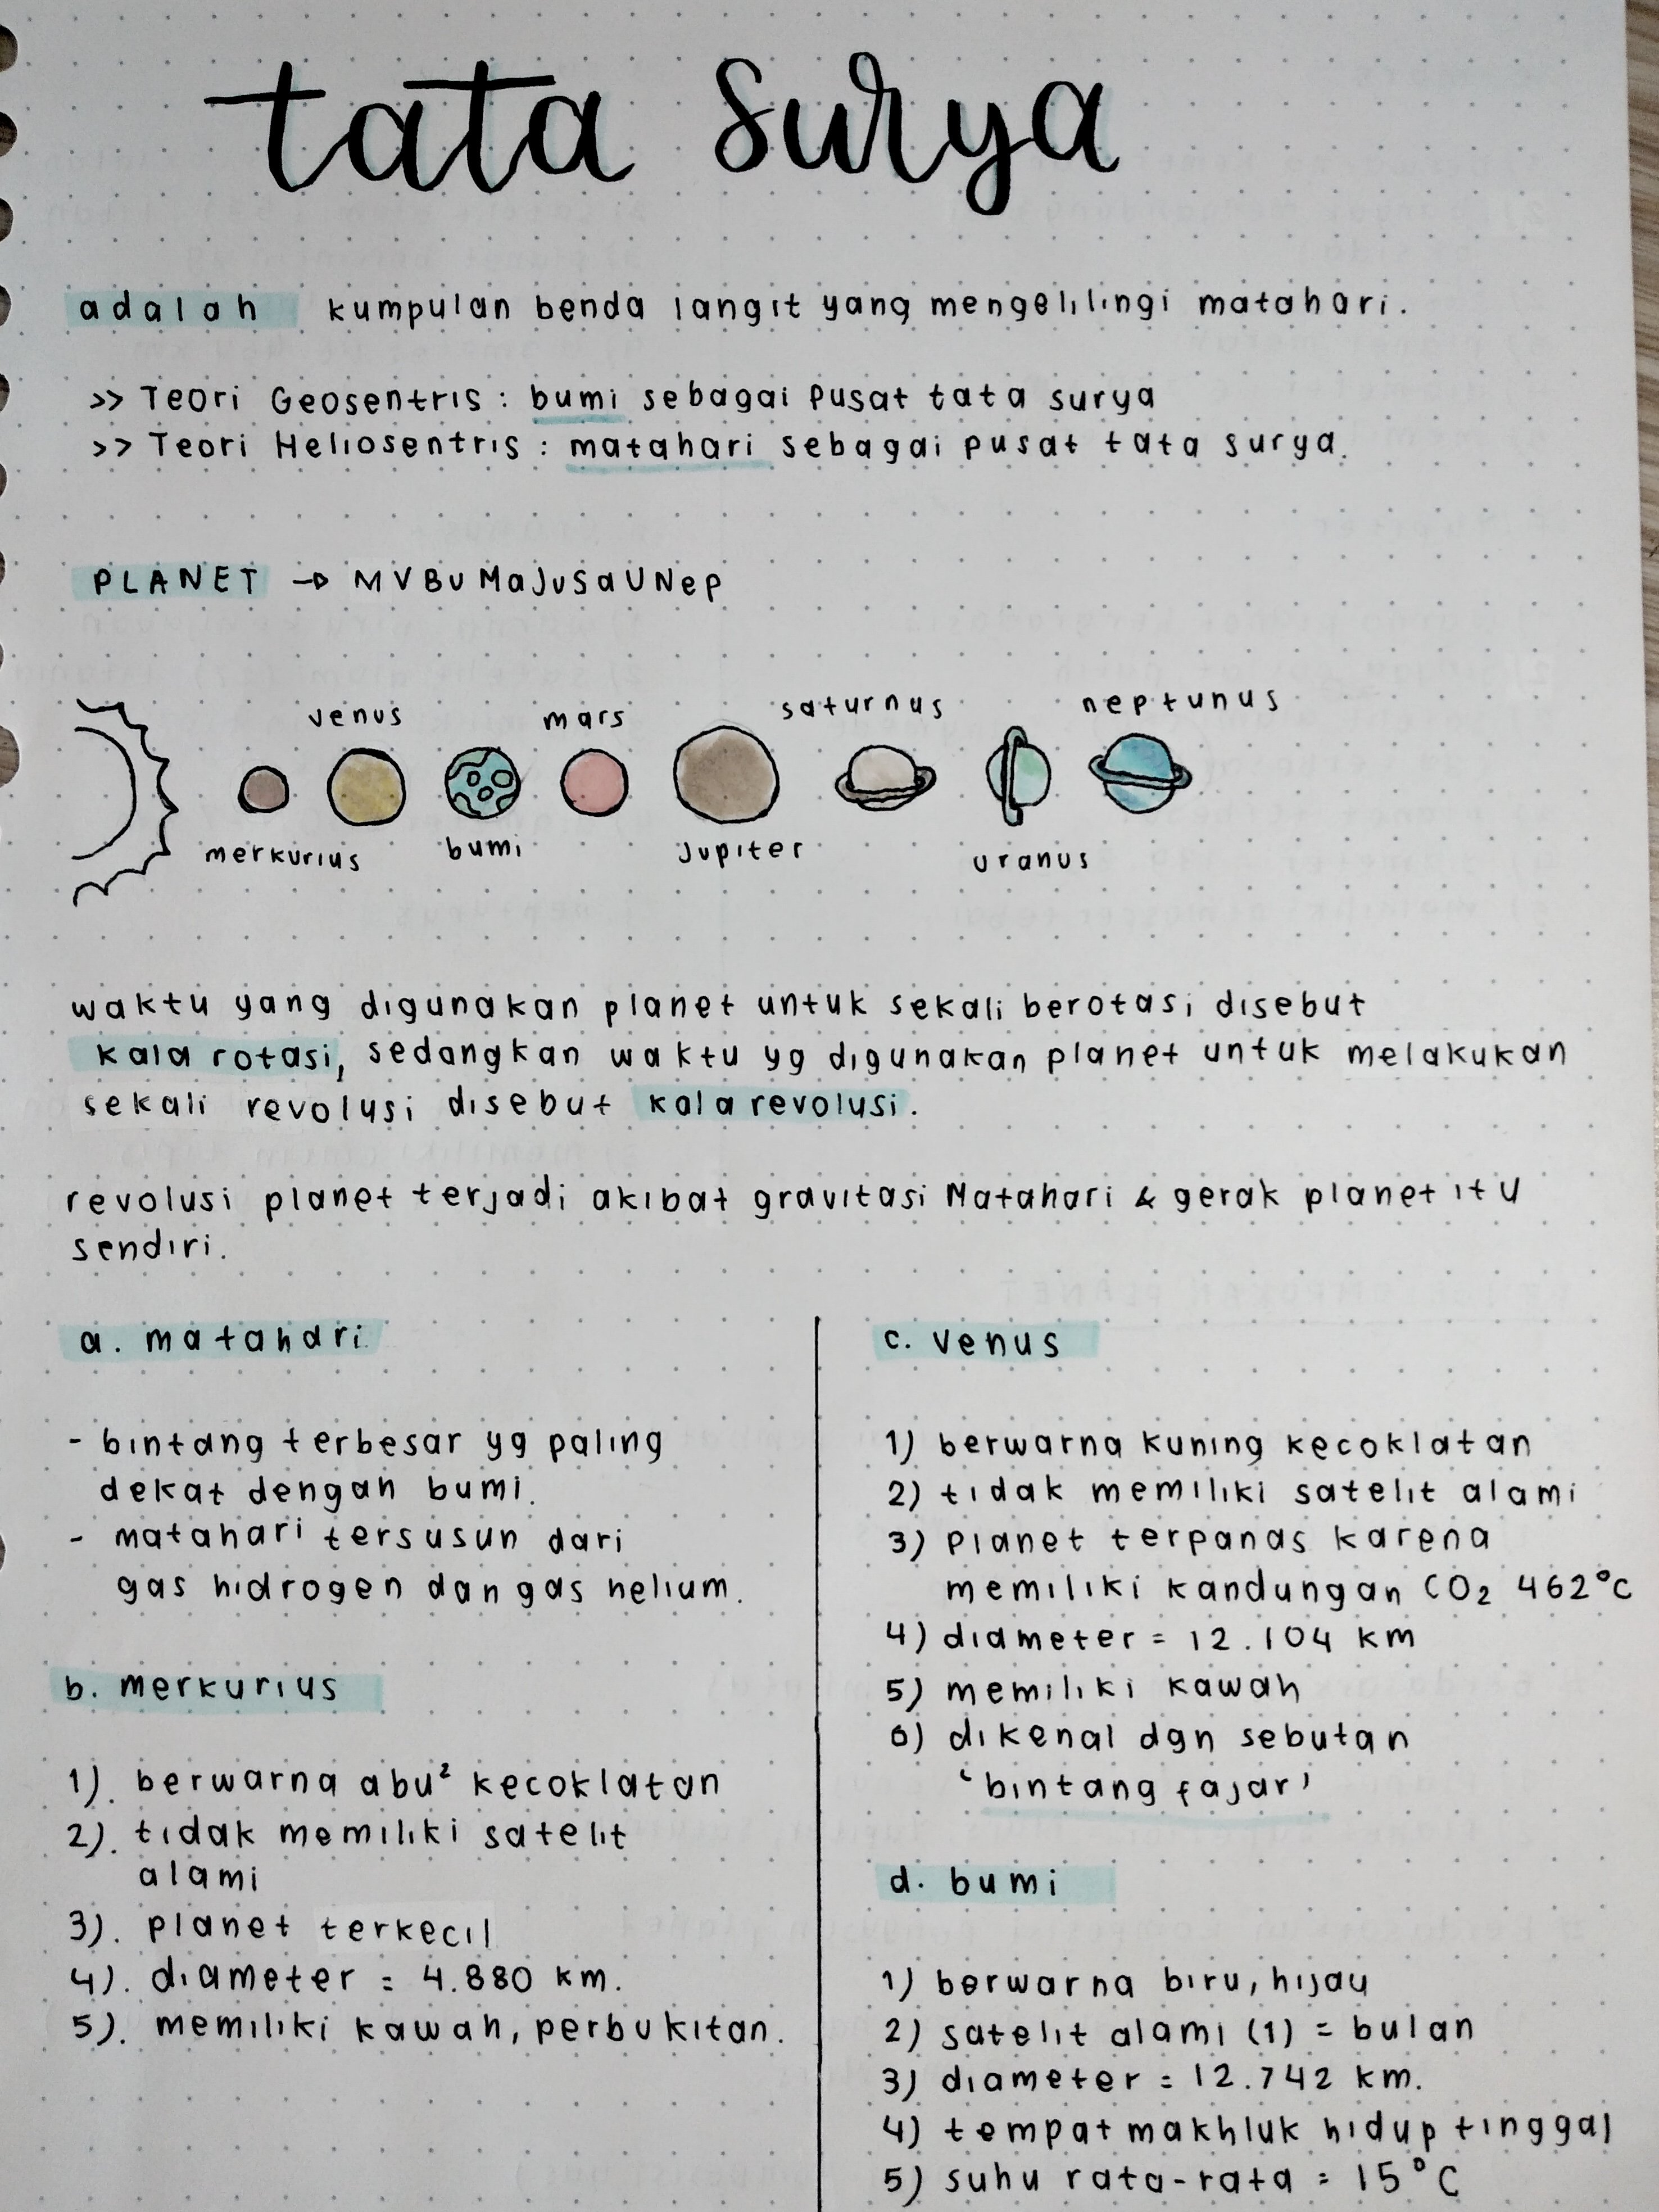 tata surya
adalah kumpulan benda langit yang mengelilingi matahari.
>> Teori Geosentris : bumi sebagai pusat tata surya
>> Teori Heliosentris : matahari sebagai pusat tata surya.
PLANET → MVBUMaJuSaUNep
venus mars saturnus neptunus
merkurius bumi Jupiter uranus
waktu yang digunakan planet untuk sekali berotasi disebut
kala rotasi, sedangkan waktu yg digunakan planet untuk melakukan
sekali revolusi disebut kala revolusi.
revolusi planet terjadi akibat gravitasi Matahari & gerak planet itu
sendiri.
a. matahari
- bintang terbesar yg paling
dekat dengan bumi.
- matahari tersusun dari
gas hidrogen dan gas helium.
b. merkurius
1). berwarna abu² kecoklatan
2). tidak memiliki satelit
alami
3). planet terkecil
4). diameter = 4.880 km.
5). memiliki kawah, perbukitan.
c. venus
1) berwarna kuning kecoklatan
2) tidak memiliki satelit alami
3) planet terpanas karena
memiliki kandungan CO₂ 462°C
4) diameter = 12.104 km
5) memiliki kawah
6) dikenal dgn sebutan
'bintang fajar'
d. bumi
1) berwarna biru, hijau
2) satelit alami (1) = bulan
3) diameter = 12.742 km.
4) tempat makhluk hidup tinggal
5) suhu rata-rata = 15°C